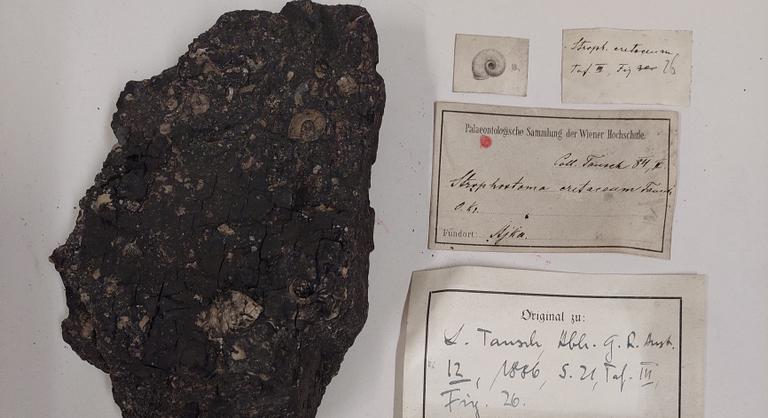 Stroph. cretaceum
Taf III, Fig 26
Palaeontologische Sammlung der Wiener Hochschule.
Coll. Tausch 84,
Strophostoma cretaceum Tausch
O. Kr.
Fundort: Ajka.
Original zu:
L. Tausch, Abh. G. R. Anst.
12, 1886, S. 21, Taf. III,
Fig. 26.